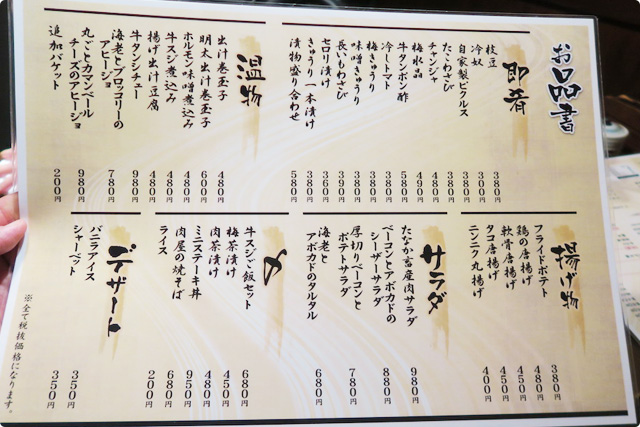 お品書
即肴
枝豆 380円
冷奴 300円
自家製ピクルス 300円
たこわさび 380円
チャンジャ 480円
梅水晶 490円
牛タンポン酢 580円
冷しトマト 380円
梅きゅうり 380円
味噌きゅうり 380円
長いもわさび 390円
セロリ漬け 360円
きゅうり一本漬け 380円
漬物盛り合わせ 580円
温物
出汁巻玉子 480円
明太出汁巻玉子 600円
ホルモン味噌煮込み 480円
牛スジ煮込み 480円
揚げ出汁豆腐 480円
牛タンシチュー 980円
海老とブロッコリーの
アヒージョ 780円
丸ごとカマンベール
チーズのアヒージョ 980円
追加バケット 200円
揚げ物
フライドポテト 380円
鶏の唐揚げ 480円
軟骨唐揚げ 450円
タコ唐揚げ 450円
ニンニク丸揚げ 400円
サラダ
たなか畜産肉サラダ 980円
ベーコンとアボカドの
シーザーサラダ 880円
厚切りベーコンと
ポテトサラダ 780円
海老と
アボカドのタルタル 680円
〆
牛スジご飯セット 680円
梅茶漬け 450円
肉茶漬け 480円
ミニステーキ丼 950円
肉屋の焼そば 680円
ライス 200円
デザート
バニラアイス 350円
シャーベット 350円
※全て税抜価格になります。